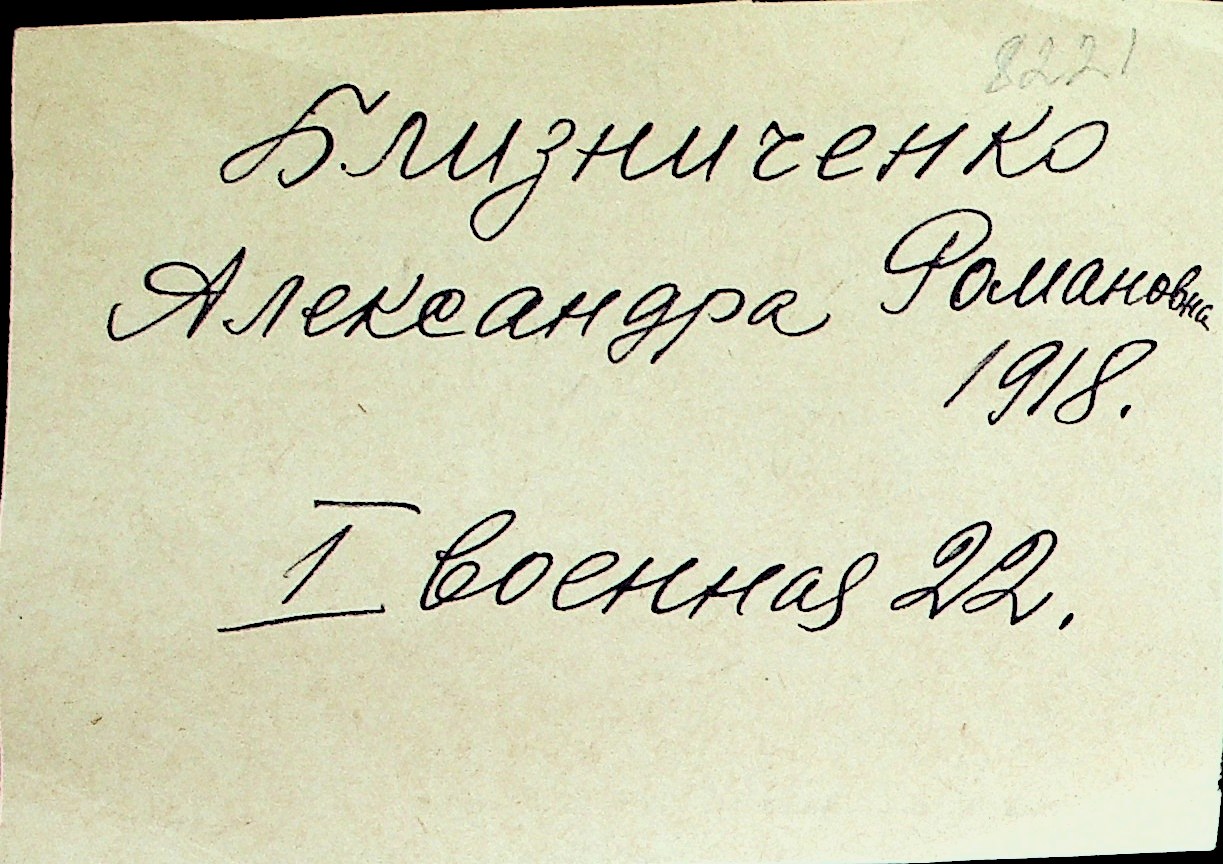 8221
Близниченко
Александра Романовна
1918.
I военная 22.